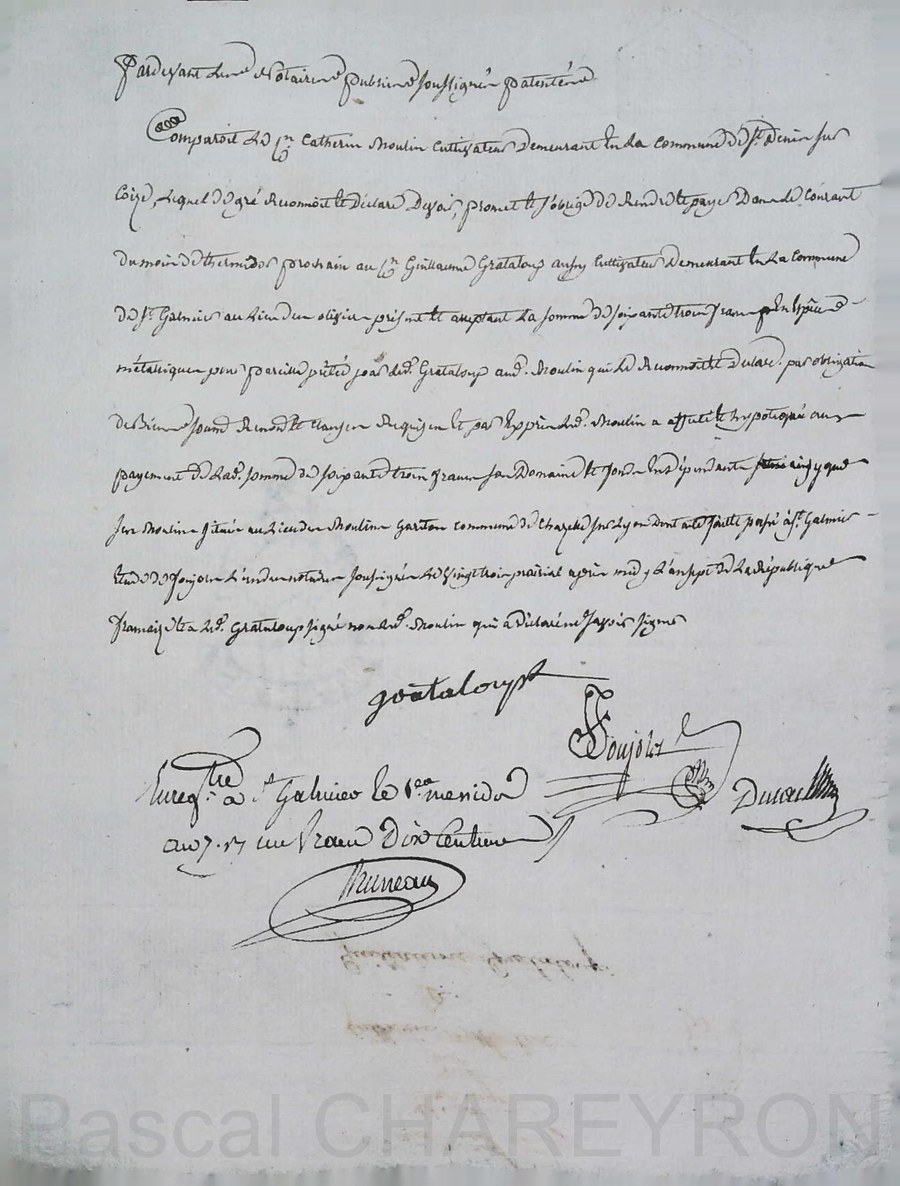 Pardevant les Notaires publics soussignés patentés
Comparoit le Cn Catherin Moulin cultivateur demeurant en la commune de St. Denis sur
Coize, lequel de gré reconnoit et déclare devoir, promet et s'oblige de rendre et payer dans le courant
du mois de thermidor prochain au Cn Guillaume Grataloup aussy cultivateur demeurant en la commune
de St. Galmier au lieu des oliviers présent et acceptant la somme de soixante trois francs en espèces
métalliques pour pareille prêtée par led. Grataloup aud. Moulin qui le reconnoit et déclare. par obligation
de Biens soumd. renond. et clauses requises et par exprès led. Moulin a affecté et hypotéqué au
payement de lad. somme de soixante trois francs son Domaine et fonds en dépendants ainsy que
ses Moulins situés au lieu des Moulins Gariton commune de Chazelle sur Lyon dont acte fait et passé à St. Galmier
Etude de Soujols l'un des notaires soussignés le vingt trois prairial après midy l'an sept de la République
française et a led. Grataloup signé non led. Moulin qui a déclaré ne savoir signer
grataloup
Soujols
Enregtré à St Galmier le 1er messidor
an 7. rç un franc Dix Centimes
Bruneau
Pascal CHAREYRON